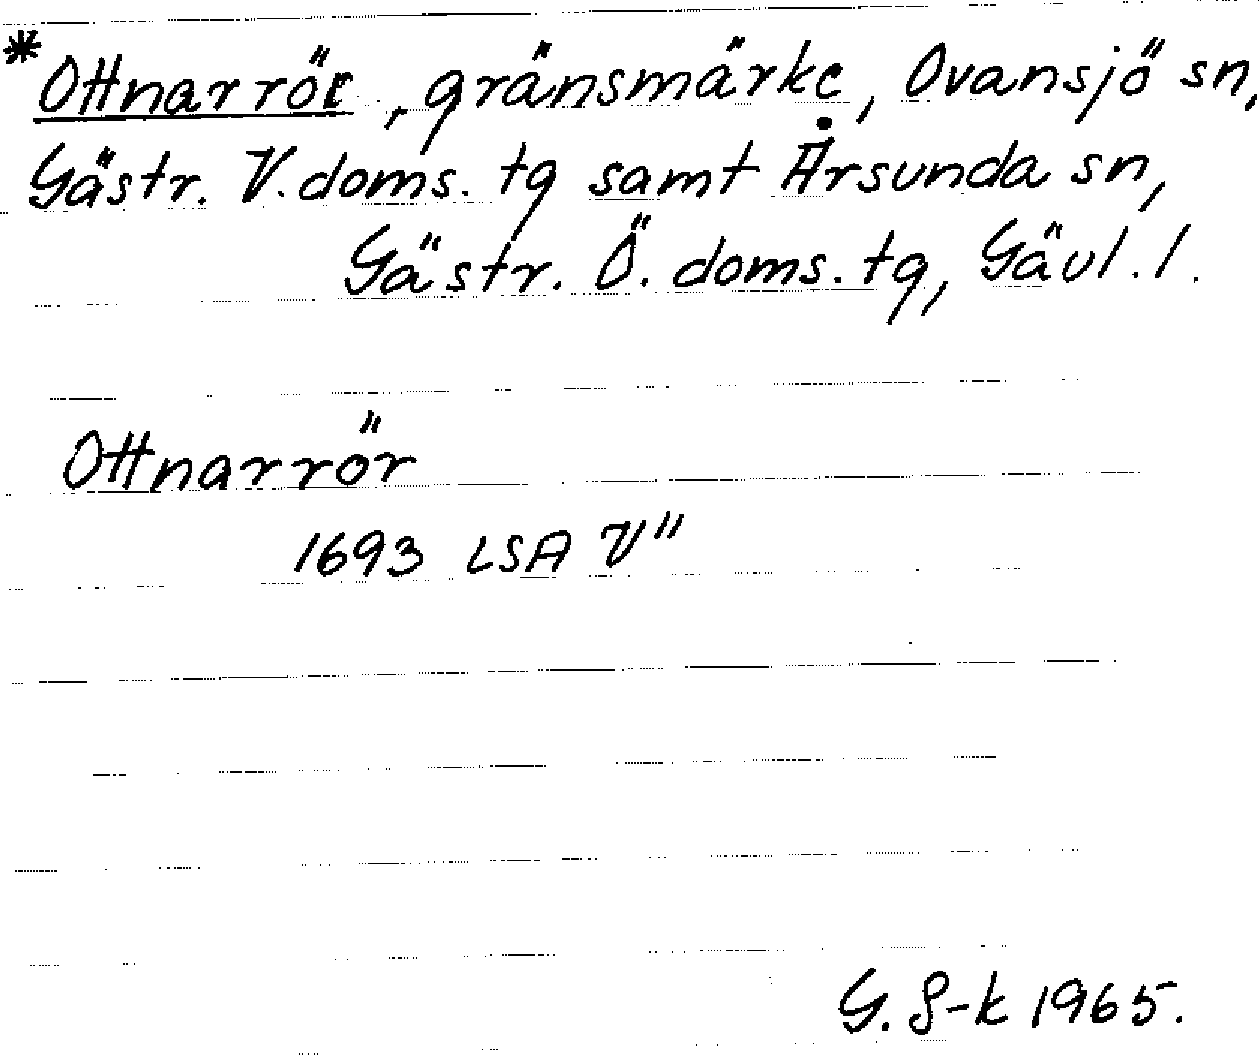 *Ottnarrör, gränsmärke, Ovansjö sn,
Gästr. V. doms. tg samt Årsunda sn,
Gästr. Ö. doms. tg, Gävl. l.
Ottnarrör
1693 LSA V"
G. S-k 1965.